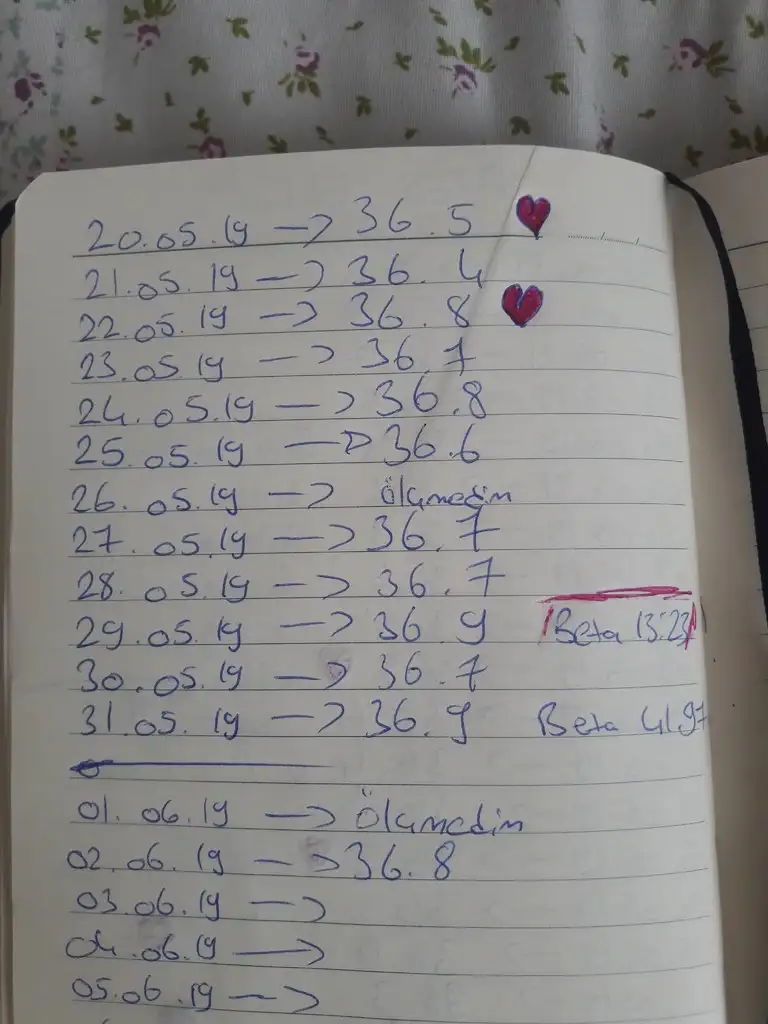 20.05.19 → 36.5 ♥
21.05.19 → 36.4
22.05.19 → 36.8 ♥
23.05.19 → 36.7
24.05.19 → 36.8
25.05.19 → 36.6
26.05.19 → Ölçmedim
27.05.19 → 36.7
28.05.19 → 36.7
29.05.19 → 36.9 Beta 13:23
30.05.19 → 36.7
31.05.19 → 36.9 Beta 41.97
01.06.19 → Ölçmedim
02.06.19 → 36.8
03.06.19 →
04.06.19 →
05.06.19 →